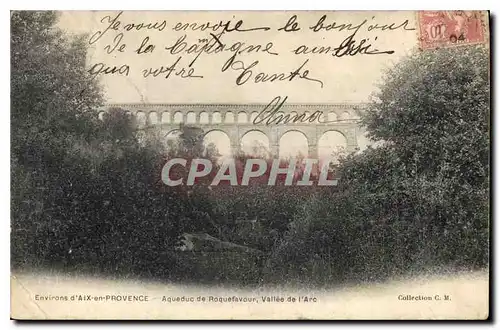 Je vous envoie le bonjour
de la Capagne ainssi
qua votre Tante
Anna
04
CPARHIL
Environs d'AIX-en-PROVENCE - Aqueduc de Roquefavour, Vallée de l'Arc
Collection C. M.